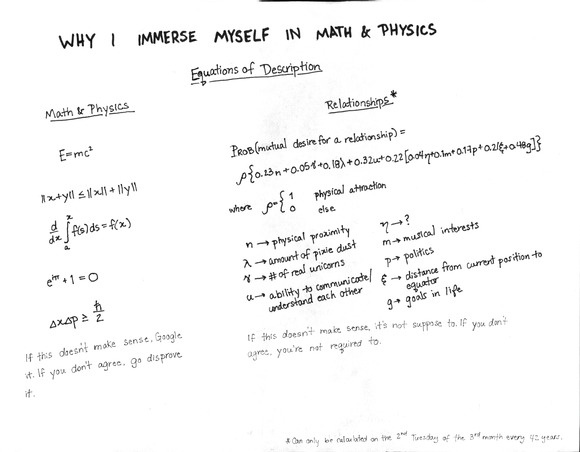 WHY I IMMERSE MYSELF IN MATH & PHYSICS
Equations of Description
Math & Physics
E=mc²
||x+y|| ≤ ||x|| + ||y||
d/dx ∫ₐˣ f(s)ds = f(x)
e^iπ + 1 = 0
ΔxΔp ≥ ħ/2
If this doesn't make sense, Google
it. If you don't agree, go disprove
it.
Relationships*
PROB(mutual desire for a relationship) =
ρ{0.23n + 0.05γ + 0.18λ + 0.32u + 0.22[0.04η + 0.1m + 0.17p + 0.21ξ + 0.48g]}
where ρ = { 1 physical attraction
0 else
n → physical proximity
λ → amount of pixie dust
γ → # of real unicorns
u → ability to communicate/
understand each other
η → ?
m → musical interests
p → politics
ξ → distance from current position to
equator
g → goals in life
If this doesn't make sense, it's not suppose to. If you don't
agree, you're not required to.
* Can only be calculated on the 2nd Tuesday of the 3rd month every 42 years.